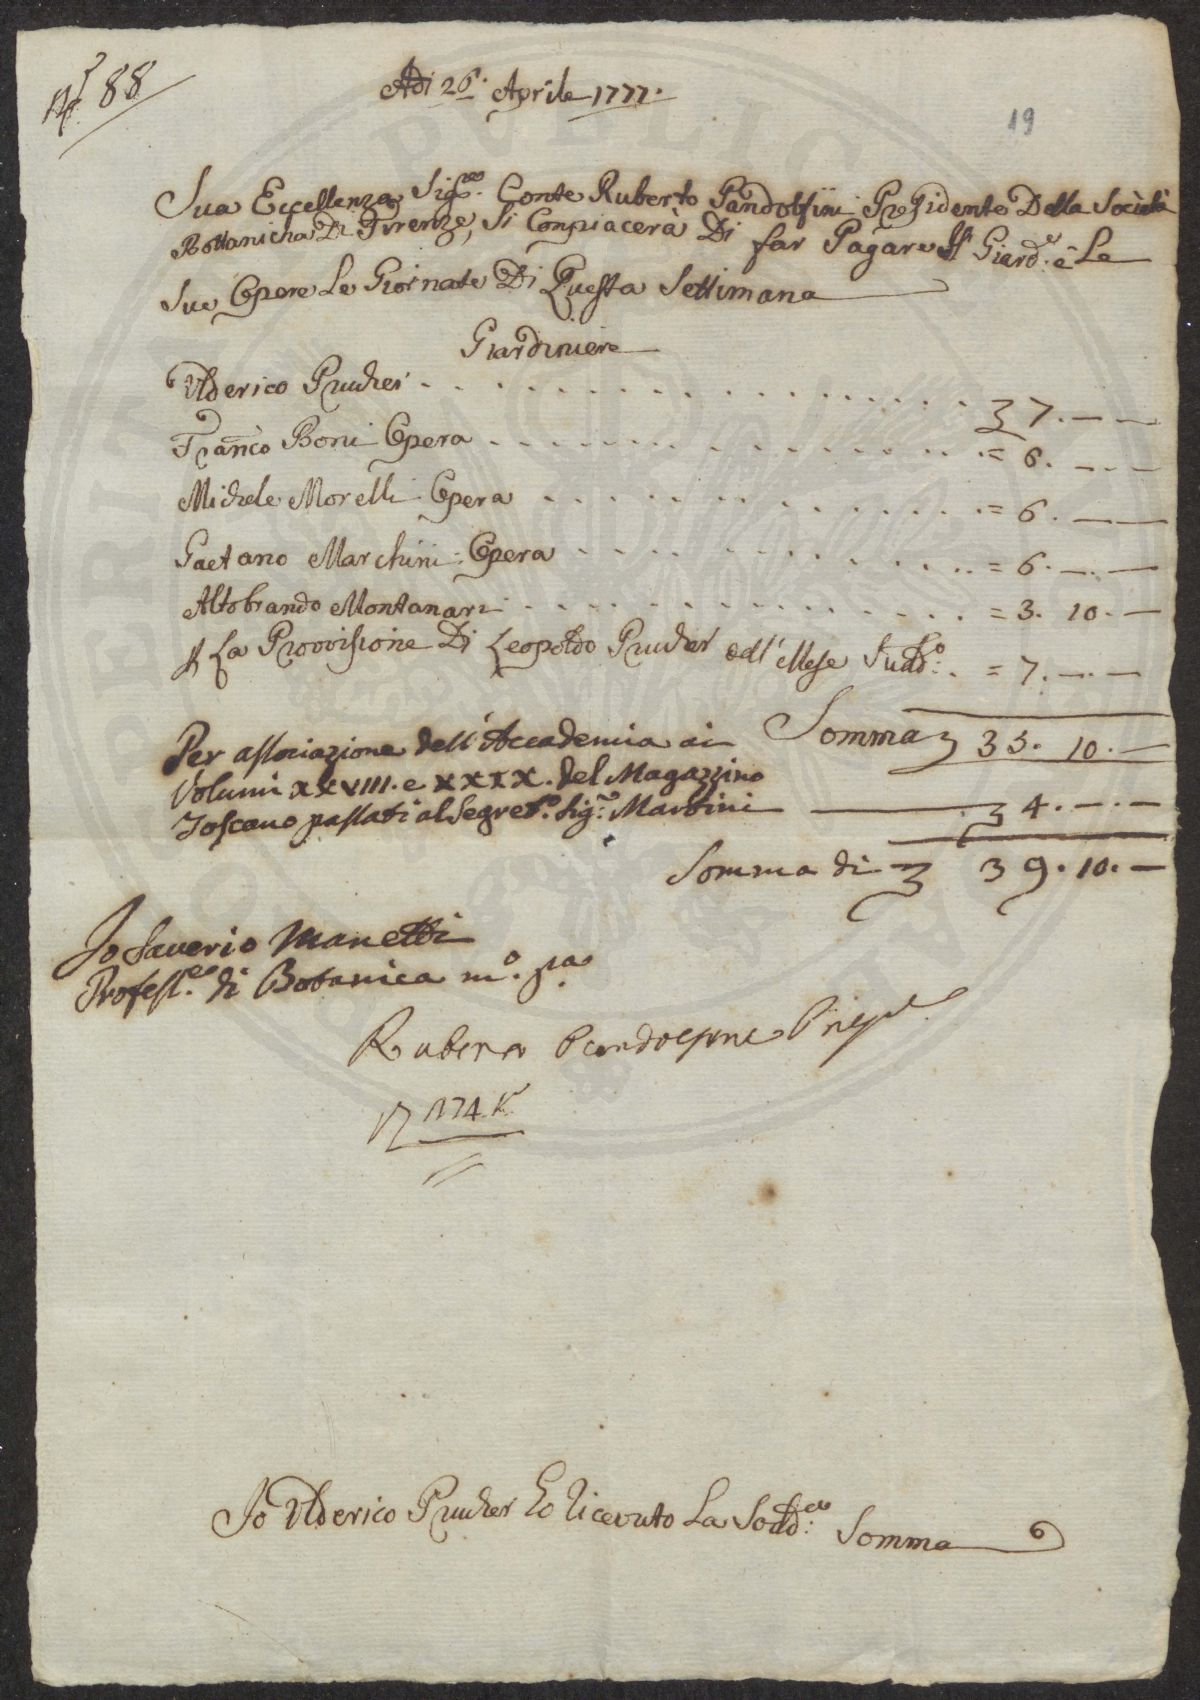 N.º 88
Adì 26. Aprile 1777.
19
Sua Eccellenza Sig.re Conte Ruberto Pandolfini Presidente Della Società
Bottanicha Di Firenze, Si Compiacerà Di far Pagare Il Giard.e è Le
Sue Opere Le Giornate Di Questa Settimana
Giardiniere
Ulderico Prucher . . . . . . . . . . 7. — —
Franco Boni Opera . . . . . . . . . . = 6. — —
Michele Morelli Opera . . . . . . . . . . = 6. — —
Gaetano Marchini Opera . . . . . . . . . . = 6. — —
Altobrando Montanari . . . . . . . . . . = 3. 10. —
La Provvisione Di Leopoldo Prucher dell' Mese Sudd.o . = 7. — —
Somma 35. 10. —
Per associazione dell' Accademia ai
Volumi XXVIII. e XXIX. del Magazzino
Toscano passati al Segret.o Sig.r Martini — 4. — —
Somma di 39. 10. —
Io Saverio Manetti
Profess.e di Botanica m.o p.a
Ruberto Pandolfini Presid.
174
Io Ulderico Prucher ho ricevuto La Sodd.a Somma